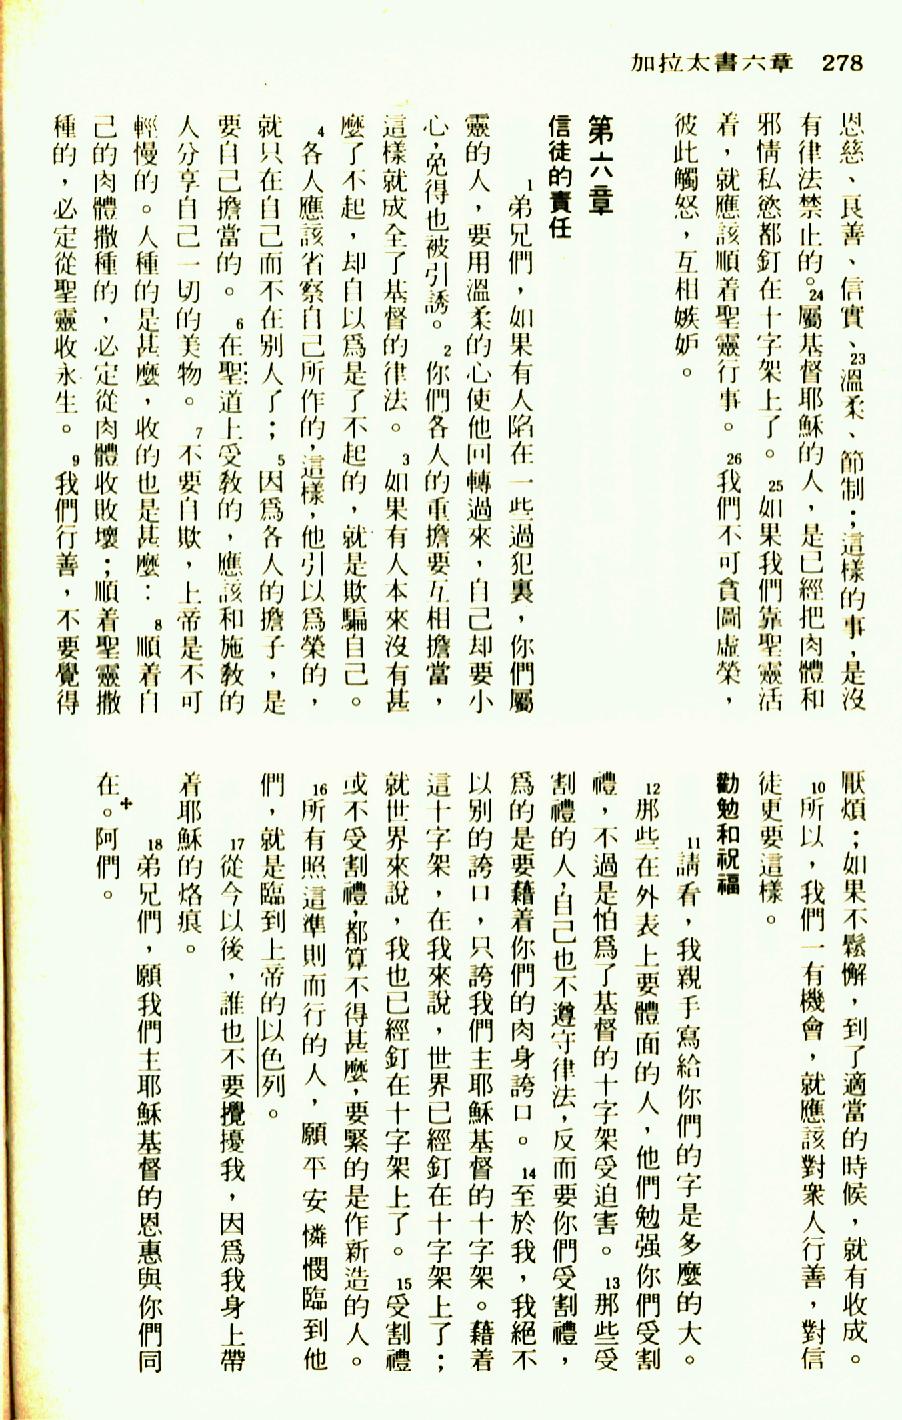 加拉太書六章　278
恩慈、良善、信實、23溫柔、節制；這樣的事，是沒
有律法禁止的。24屬基督耶穌的人，是已經把肉體和
邪情私慾都釘在十字架上了。25如果我們靠聖靈活
着，就應該順着聖靈行事。26我們不可貪圖虛榮，
彼此觸怒，互相嫉妒。
第六章
信徒的責任
1弟兄們，如果有人陷在一些過犯裏，你們屬
靈的人，要用溫柔的心使他回轉過來，自己却要小
心，免得也被引誘。2你們各人的重擔要互相擔當，
這樣就成全了基督的律法。3如果有人本來沒有甚
麼了不起，却自以爲是了不起的，就是欺騙自己。
4各人應該省察自己所作的，這樣，他引以爲榮的，
就只在自己而不在別人了；5因爲各人的擔子，是
要自己擔當的。6在聖道上受教的，應該和施教的
人分享自己一切的美物。7不要自欺，上帝是不可
輕慢的。人種的是甚麼，收的也是甚麼：8順着自
己的肉體撒種的，必定從肉體收敗壞；順着聖靈撒
種的，必定從聖靈收永生。9我們行善，不要覺得
厭煩；如果不鬆懈，到了適當的時候，就有收成。
10所以，我們一有機會，就應該對衆人行善，對信
徒更要這樣。
勸勉和祝福
11請看，我親手寫給你們的字是多麼的大。
12那些在外表上要體面的人，他們勉强你們受割
禮，不過是怕爲了基督的十字架受迫害。13那些受
割禮的人，自己也不遵守律法，反而要你們受割禮，
爲的是要藉着你們的肉身誇口。14至於我，我絕不
以別的誇口，只誇我們主耶穌基督的十字架。藉着
這十字架，在我來說，世界已經釘在十字架上了；
就世界來說，我也已經釘在十字架上了。15受割禮
或不受割禮，都算不得甚麼，要緊的是作新造的人。
16所有照這準則而行的人，願平安憐憫臨到他
們，就是臨到上帝的以色列。
17從今以後，誰也不要攪擾我，因爲我身上帶
着耶穌的烙痕。
18弟兄們，願我們主耶穌基督的恩惠與你們同
在。阿們。